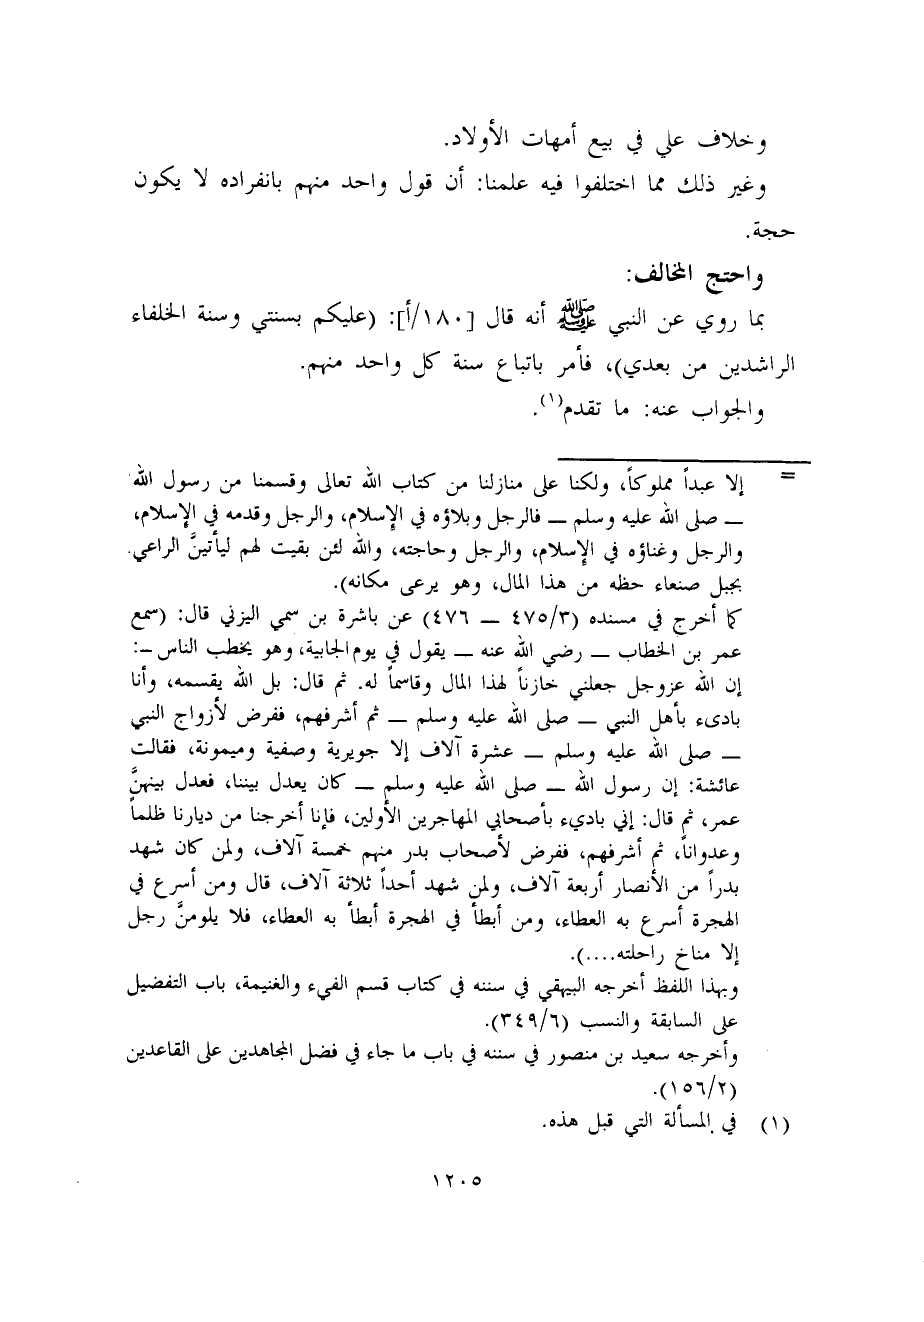 وخلاف علي في بيع أمهات الأولاد.
وغير ذلك مما اختلفوا فيه علمنا: أن قول واحد منهم بانفراده لا يكون
حجة.
واحتج المخالف:
بما روي عن النبي ﷺ أنه قال [١٨٠/أ]: (عليكم بسنتي وسنة الخلفاء
الراشدين من بعدي)، فأمر باتباع سنة كل واحد منهم.
والجواب عنه: ما تقدم(١).
= إلا عبداً مملوكاً، ولكنا على منازلنا من كتاب الله تعالى وقسمنا من رسول الله
ــ صلى الله عليه وسلم ــ فالرجل وبلاؤه في الإسلام، والرجل وقدمه في الإسلام،
والرجل وغناؤه في الإسلام، والرجل وحاجته، والله لئن بقيت لهم ليأتينَّ الراعي.
بجبل صنعاء حظه من هذا المال، وهو يرعى مكانه).
كما أخرج في مسنده (٤٧٥/٣ ــ ٤٧٦) عن باشرة بن سمي اليزني قال: (سمع
عمر بن الخطاب ــ رضي الله عنه ــ يقول في يوم الجابية، وهو يخطب الناس ــ:
إن الله عزوجل جعلني خازناً لهذا المال وقاسماً له. ثم قال: بل الله يقسمه، وأنا
بادىء بأهل النبي ــ صلى الله عليه وسلم ــ ثم أشرفهم، ففرض لأزواج النبي
ــ صلى الله عليه وسلم ــ عشرة آلاف إلا جويرية وصفية وميمونة، فقالت
عائشة: إن رسول الله ــ صلى الله عليه وسلم ــ كان يعدل بيننا، فعدل بينهنَّ
عمر، ثم قال: إني باديء بأصحابي المهاجرين الأولين، فإنا أخرجنا من ديارنا ظلماً
وعدواناً، ثم أشرفهم، ففرض لأصحاب بدر منهم خمسة آلاف، ولمن كان شهد
بدراً من الأنصار أربعة آلاف، ولمن شهد أحداً ثلاثة آلاف، قال ومن أسرع في
الهجرة أسرع به العطاء، ومن أبطأ في الهجرة أبطأ به العطاء، فلا يلومنَّ رجل
إلا مناخ راحلته....).
وبهذا اللفظ أخرجه البيهقي في سننه في كتاب قسم الفيء والغنيمة، باب التفضيل
على السابقة والنسب (٣٤٩/٦).
وأخرجه سعيد بن منصور في سننه في باب ما جاء في فضل المجاهدين على القاعدين
(١٥٦/٢).
(١) في المسألة التي قبل هذه.
١٢٠٥